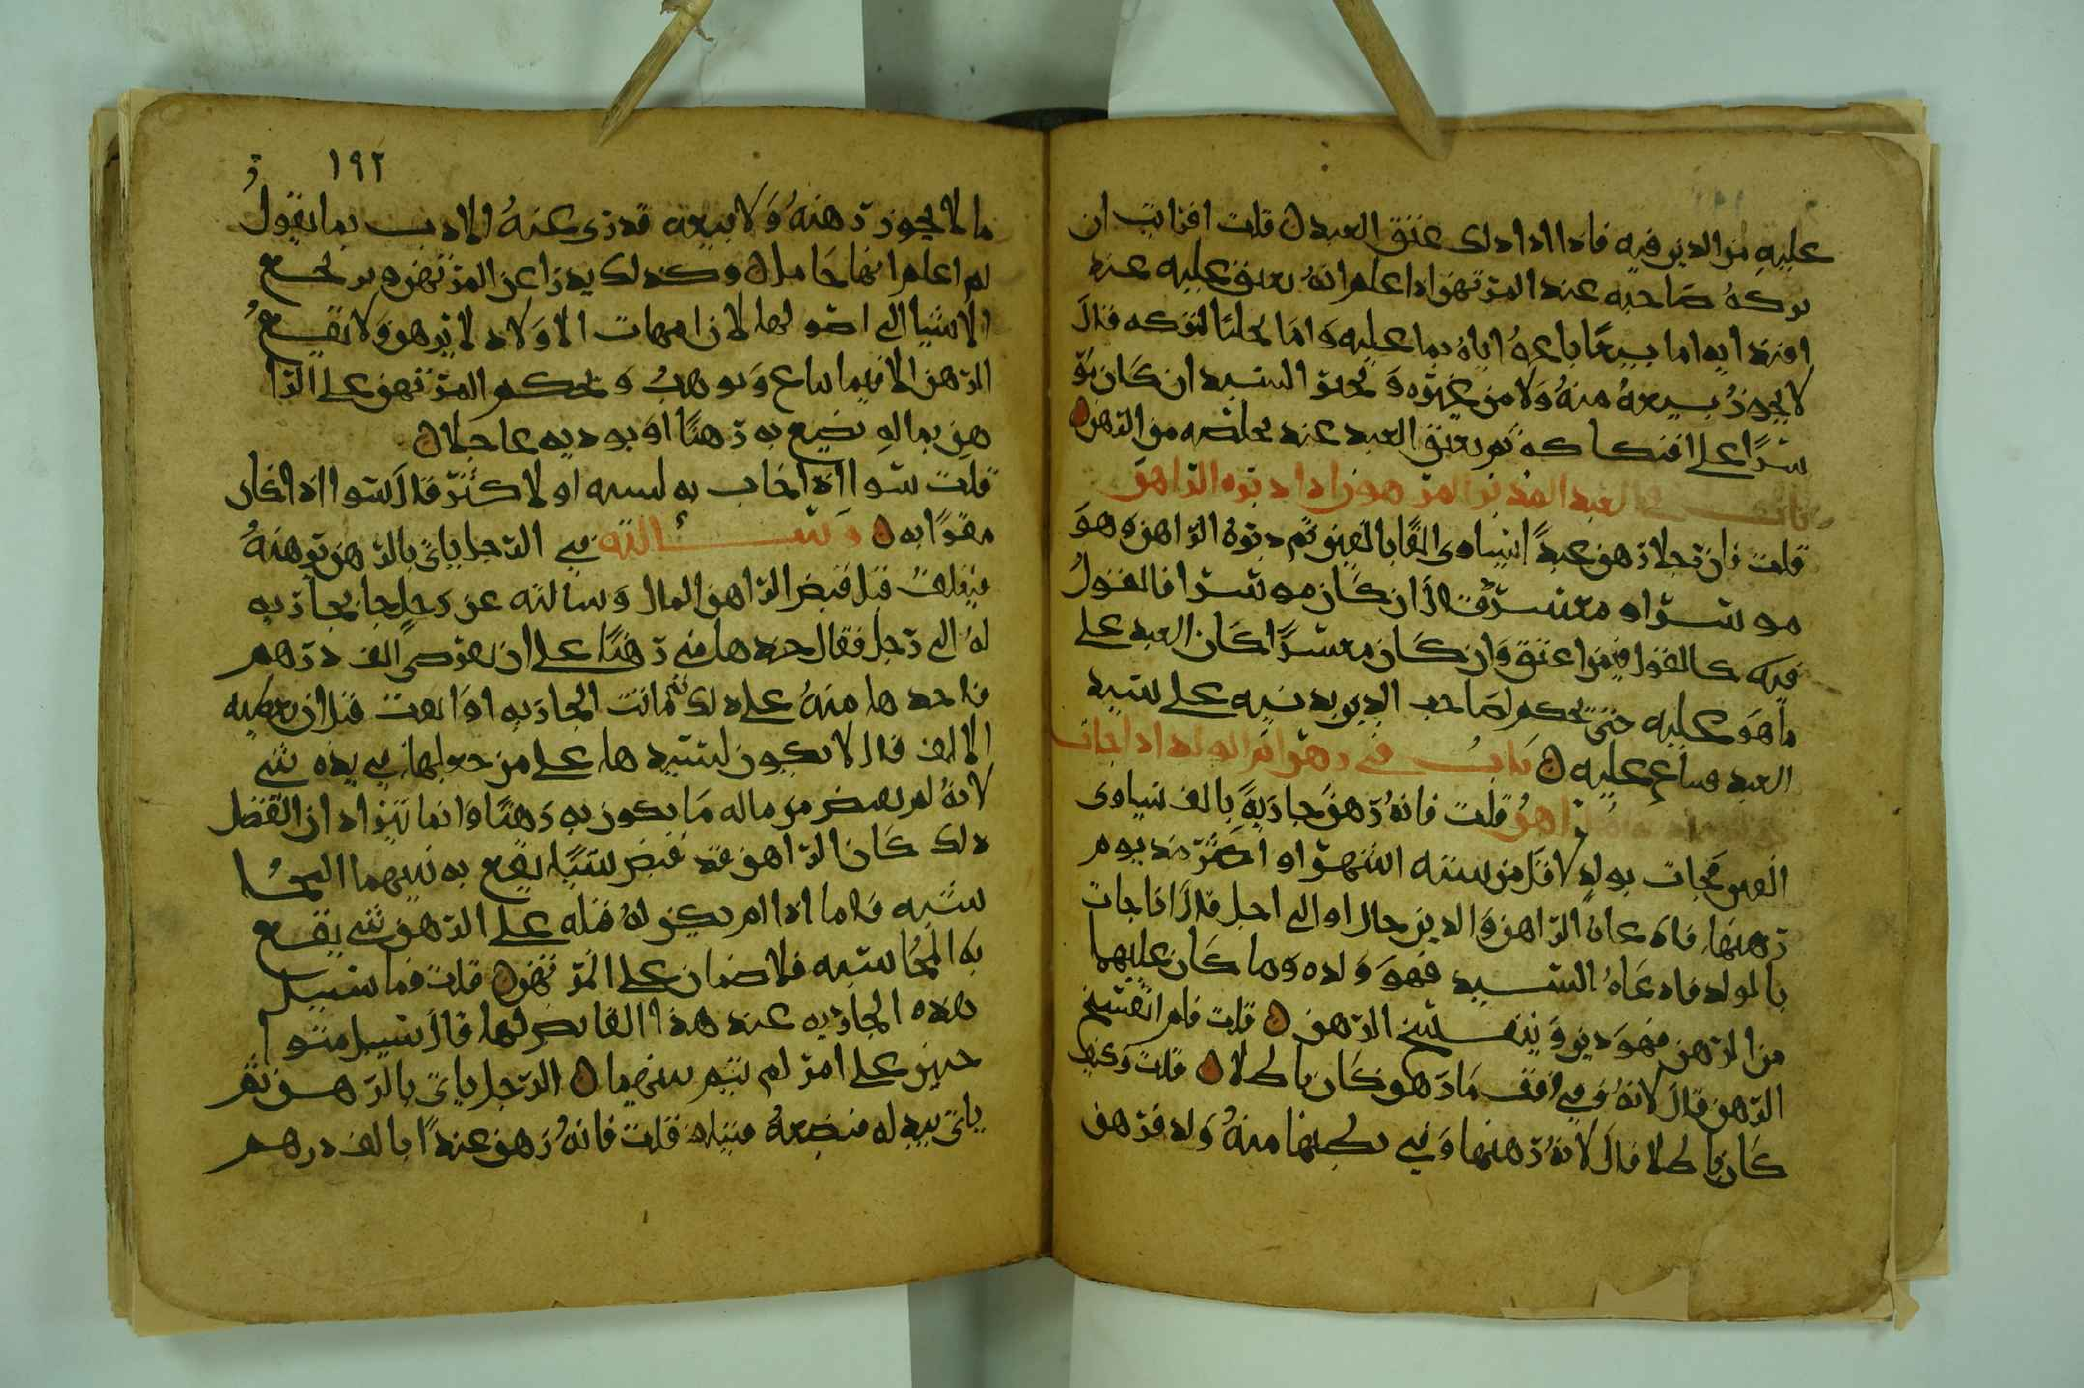 عليه من الدين فيه فاذا ادا ذلك عتق العبد ن قلت افرايت ان
تركه صاحبه عند المرتهن اذا علم انه يعتق عليه عند
افتدايه اما ببيعا باعه اياه بما عليه واما لتركه قال
لا يجوز بيعه منه ولا من غيره و السيد ان كان مو
سرا على افتكاكه ثم يعتق العبد عند تخلصه من الرهن ن
باب في العبد المدبر المرهون اذا دبره الراهن
قلت فان رجلا رهن عبدا يساوي الفا بالفين ثم دبره الراهن وهو
موسرا او معسر قال ان كان موسرا فالقول
فيه كالقول فيمن اعتق وان كان معسرا كان العبد على
ما هو عليه حتى يحكم لصاحب الدين بدينه على سيد
العبد فيباع عليه ن باب في رهن ام الولد اذا جات
الراهن قلت فانه رهن جارية بالف تساوي
الفين فجات بولد لاقل من ستة اشهر او اكثر منذ يوم
رهنها فادعاه الراهن والدين حال او الى اجل قال اذا جات
بالولد فادعاه السيد فهو ولده وما كان عليها
من الرهن فهو دين وينفسخ الرهن ن قلت فلم انفسخ
الرهن قال لانه في وقت ما رهن كان باطلا ن قلت وكيف
كان باطلا قال لانه رهنها وفي بطنها منه ولد فرهن
١٩٢
ما لا يجوز رهنه ولا بيعه قد زي عنه الادب بما يقول
لم اعلم انها حامل ن وكذلك يدرا عن المرتهن و
الاشيا الى اصولها لان امهات الاولاد لا ترهن ولا يقع
الرهن الا فيما يباع ويوهب ويحكم المرتهن على الرا
هن بماله يضع به رهنا او يوديه عاجلا ن
قلت سوا اذا اجاب به لسنه او لاكثر قال سوا اذا كان
مقرا به ن مسالة في الرجل ياتي بالرهن يرهنه
فيتلف قبل قبض الراهن المال وسالته عن رجل جا بجارية
له الى رجل فقال خذها مني رهنا على ان تقرضني الف درهم
فاخذها منه على ذلك ثم ماتت الجارية او ابقت قبل ان يعطيه
الالف قال لا يكون لسيدها على من جعلها في يده شي
لانه لم يقبض من ماله ما يكون به رهنا وانما يتراد ان الفضل
ذلك كان الراهن قد قبض شيا يقع به بينهما المحا
سبه فاما اذا لم يكن له فضله على الرهن شي يقع
به المحاسبه فلا ضمان على المرتهن ن قلت فما سبيل
هذه الجارية عند هذا القابض لها قال سبيل
على امر لم يتم بينهما ن الرجل ياتي بالرهن ثم
ياتي ببدله فيضعه قلت فانه رهن عبدا بالف درهم